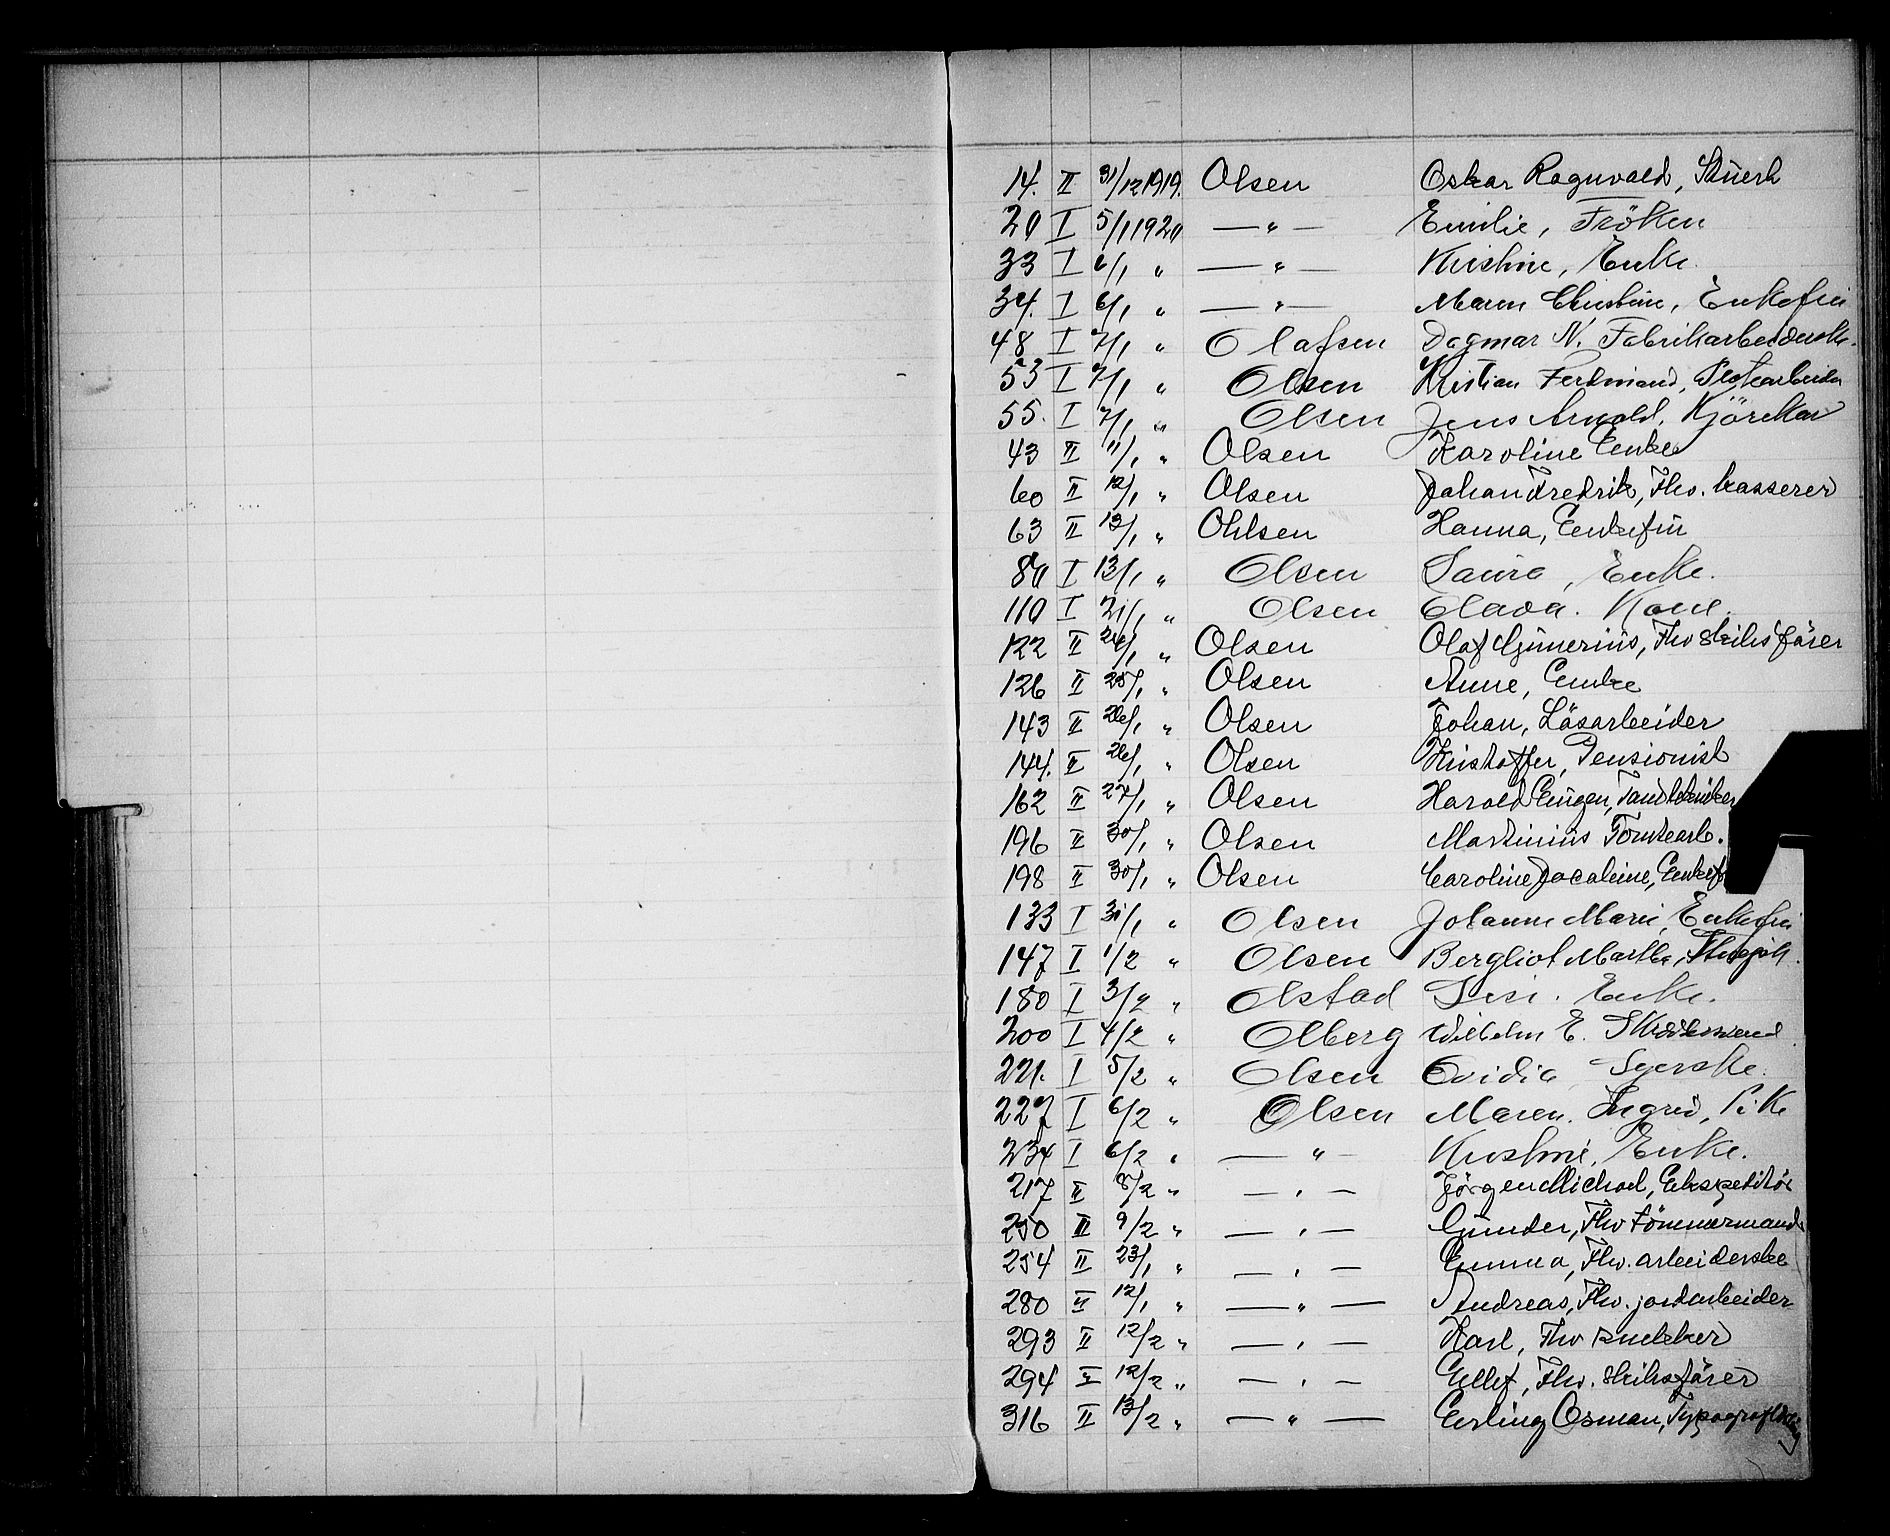 14. II 31/12 1919. Olsen Oskar Ragnvald,
20 I 5/1 1920 — " — Emilie, Fröken
33 I 6/1 " — " — Kristine, Enke.
34. I 6/1 " — " — Maren Christine, Enkefru
48 I 7/1 " Olafsen Dagmar N. Fabrikarbeiderske.
53 I 7/1 " Olsen Kristian Ferdinand,
55. I 7/1 " Olsen Jens Arnold. Kjörekar
43 II 11/1 " Olsen Karoline Enke
60 II 12/1 " Olsen Johan Fredrik, Fhv. kasserer
63 II 13/1 " Ohlsen Hanna, Enkefru
80 I 13/1 " Olsen Laura, Enke.
110 I 21/1 " Olsen Olava. Kone.
122 II 24/1 " Olsen Olaf Gunerius, Fhv skibsförer
126 II 25/1 " Olsen Anne, Enke
143 II 26/1 " Olsen Johan, Lösarbeider
144. II 26/1 " Olsen Kristoffer, Pensionist
162 II 27/1 " Olsen Harald Eugen, Tandtekniker
196 II 30/1 " Olsen Martinius Tomtearb.
198 II 30/1 " Olsen Caroline Jacobine, Enkef
133 I 31/1 " Olsen Johanne Marie, Enkefru
147 I 1/2 " Olsen Bergliot Martha,
180 I 3/2 " Olstad Lisi. Enke.
200 I 4/2 " Olberg Wilhelm E.
221. I 5/2 " Olsen Ovidia Syerske.
227 I 6/2 " Olsen Maren. Ingrid, Pike
234 I 6/2 " — " — Kristine, Enke.
217 II 8/2 " — " — Jörgen Michael, Ekspeditör
250 II 9/2 " — " — Gunder, Fhv tömmermand
254 II 23/1 " — " — Emma, Fhv. arbeiderske
280 II 12/1 " — " — Andreas, Fhv. jordarbeider
293 II 12/2 " — " — Karl, Fhv snekker
294 II 12/2 " — " — Ellef, Fhv. skibsförer
316 II 13/2 " — " — Erling Osman,